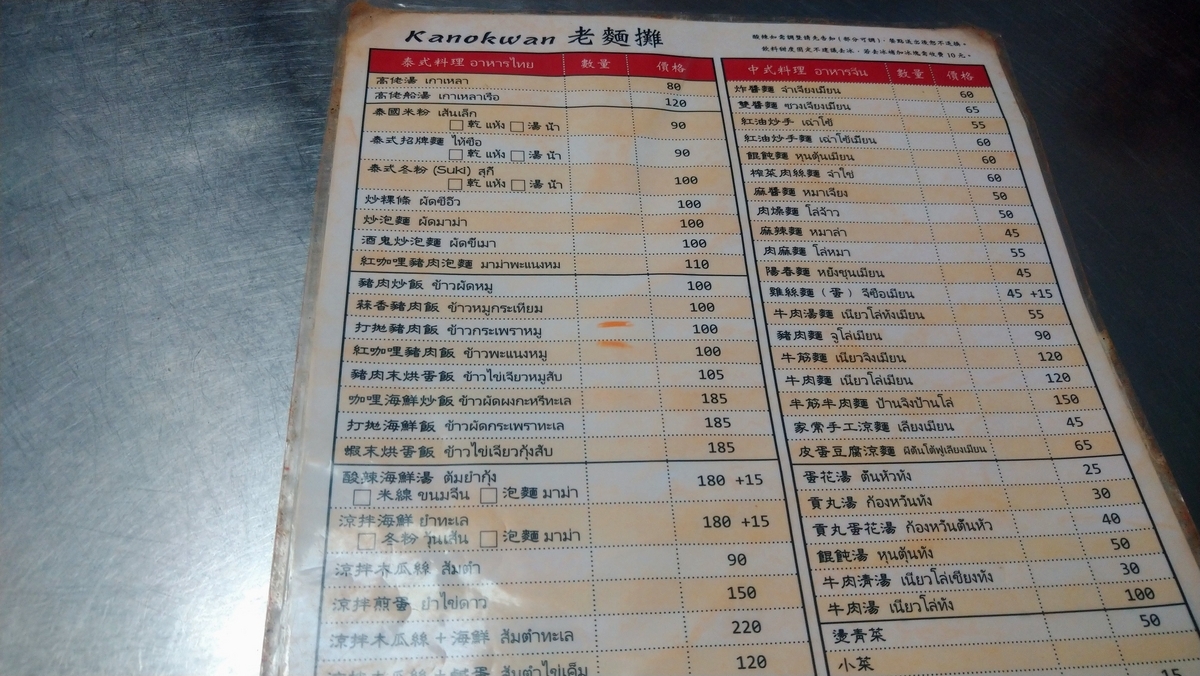 Kanokwan 老麵攤
酸辣如需調整請先告知(部分可調), 餐點送出後恕不退換。
飲料甜度固定不建議去冰, 若去冰補加冰塊需收費 10 元。
泰式料理 อาหารไทย 數量 價格
高佬湯 เกาเหลา 80
高佬船湯 เกาเหลาเรือ 120
泰國米粉 เส้นเล็ก 90
乾 แห้ง 湯 น้ำ
泰式招牌麵 ไห้ซือ 90
乾 แห้ง 湯 น้ำ
泰式冬粉 (Suki) สุกี้ 100
乾 แห้ง 湯 น้ำ
炒粿條 ผัดซีอิ๊ว 100
炒泡麵 ผัดมาม่า 100
酒鬼炒泡麵 ผัดขี้เมา 100
紅咖哩豬肉泡麵 มาม่าพะแนงหมู 110
豬肉炒飯 ข้าวผัดหมู 100
蒜香豬肉飯 ข้าวหมูกระเทียม 100
打拋豬肉飯 ข้าวกระเพราหมู 100
紅咖哩豬肉飯 ข้าวพะแนงหมู 100
豬肉末烘蛋飯 ข้าวไข่เจียวหมูสับ 105
咖哩海鮮炒飯 ข้าวผัดผงกะหรี่ทะเล 185
打拋海鮮飯 ข้าวผัดกระเพราทะเล 185
蝦末烘蛋飯 ข้าวไข่เจียวกุ้งสับ 185
酸辣海鮮湯 ต้มยำกุ้ง 180 +15
米線 ขนมจีน 泡麵 มาม่า
涼拌海鮮 ยำทะเล 180 +15
冬粉 วุ้นเส้น 泡麵 มาม่า
涼拌木瓜絲 ส้มตำ 90
涼拌煎蛋 ยำไข่ดาว 150
涼拌木瓜絲+海鮮 ส้มตำทะเล 220
涼拌木瓜絲+鹹蛋 ส้มตำไข่เค็ม 120
中式料理 อาหารจีน 數量 價格
炸醬麵 จำเจียงเมียน 60
雙醬麵 ซวงเจียงเมียน 65
紅油炒手 เฉ่าโซ้ 55
紅油炒手麵 เฉ่าโซ้เมียน 60
餛飩麵 หุนตุ้นเมียน 60
榨菜肉絲麵 จ๋าไช่ 60
麻醬麵 หมาเจียง 50
肉燥麵 โล่จ้าว 50
麻辣麵 หมาล่า 45
肉麻麵 โล่หมา 55
陽春麵 หยังชุนเมียน 45
雞絲麵(蛋) จีซือเมียน 45 +15
牛肉湯麵 เนียวโล่ทังเมียน 55
豬肉麵 จูโล่เมียน 90
牛筋麵 เนียวจิงเมียน 120
牛肉麵 เนียวโล่เมียน 120
半筋半肉麵 ป้านจิงป้านโล่ 150
家常手工涼麵 เลียงเมียน 45
皮蛋豆腐涼麵 ผีตันโต้ฟูเลียงเมียน 65
蛋花湯 ตันหัวทัง 25
貢丸湯 ก้องหวันทัง 30
貢丸蛋花湯 ก้องหวันตันหัว 40
餛飩湯 หุนตุ้นทัง 50
牛肉清湯 เนียวโล่เชียงทัง 30
牛肉湯 เนียวโล่ทัง 100
燙青菜 50
小菜
15